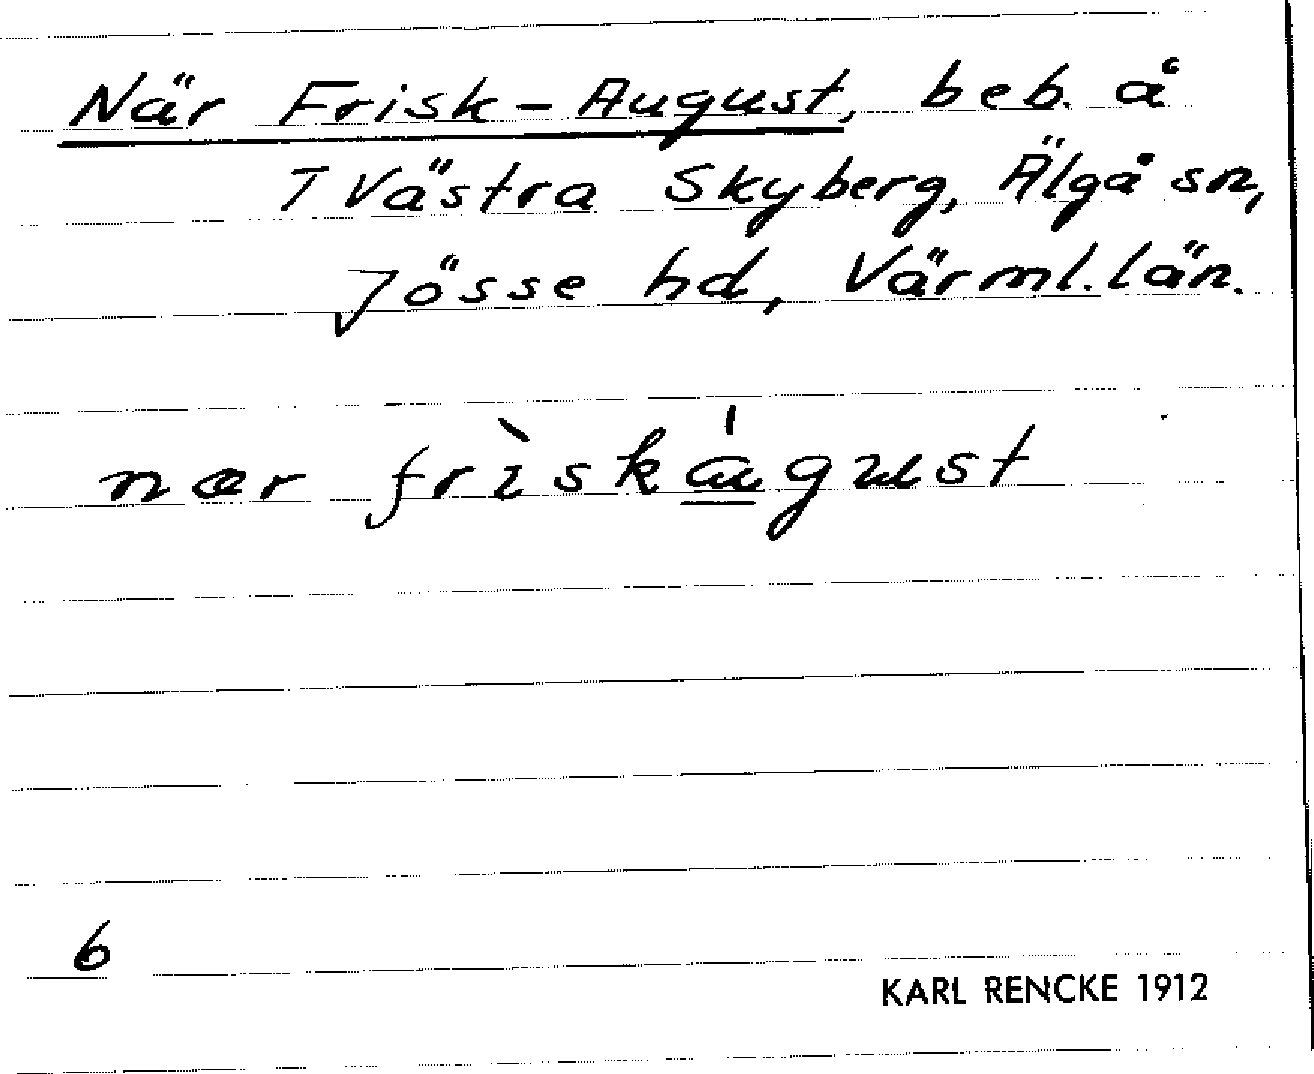 När Frisk-August, beb. å
T Västra Skyberg, Älgå sn,
Jösse hd, Värml. län.
nær frìskáugust
6
KARL RENCKE 1912